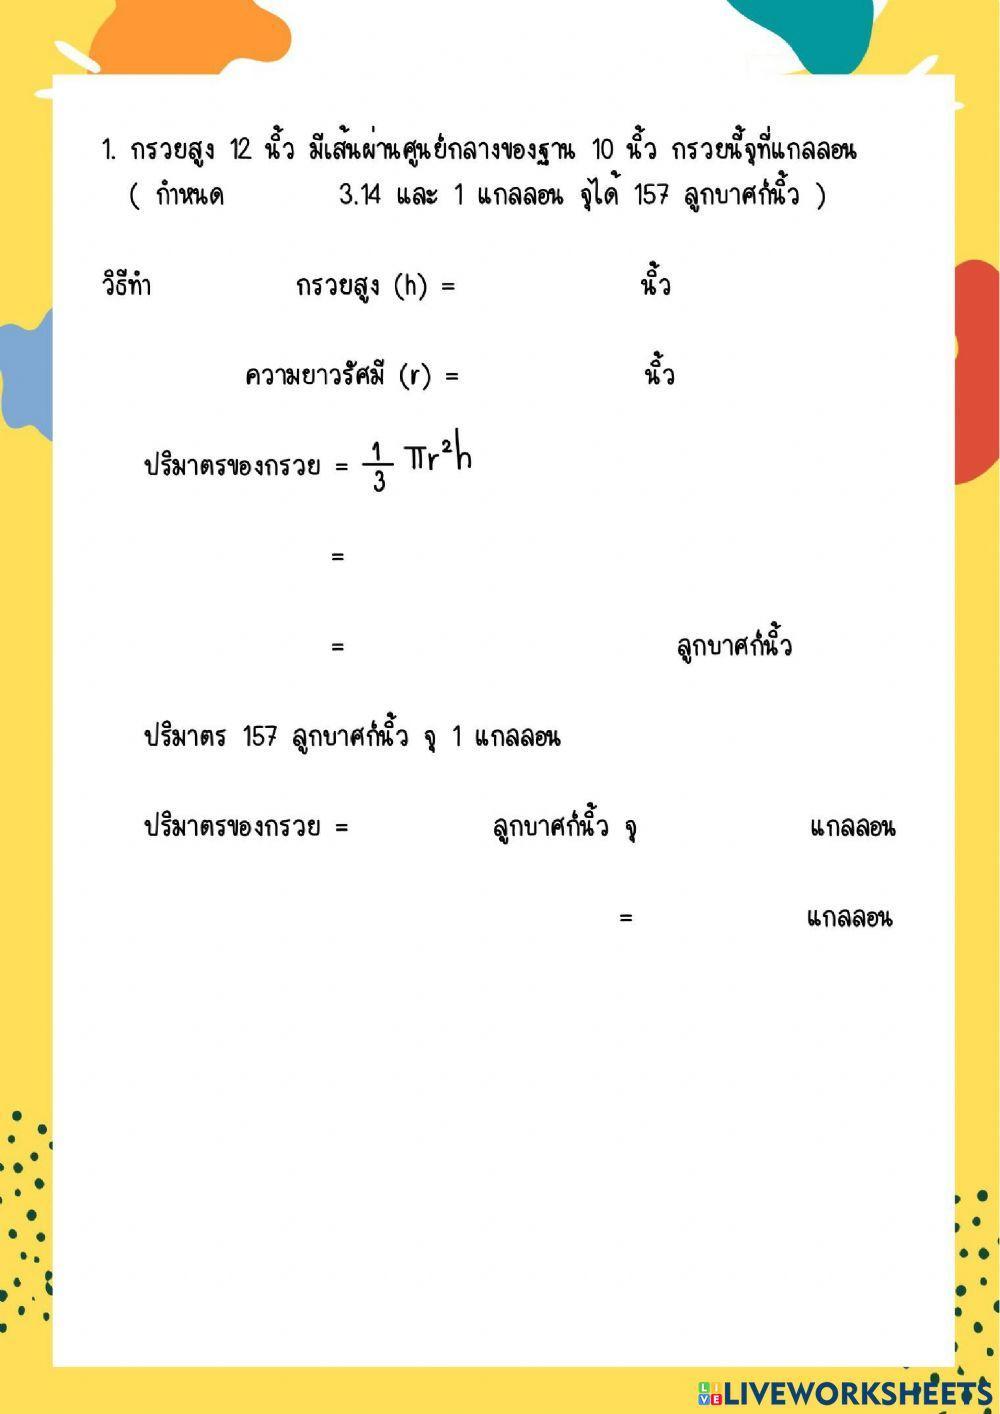 1. กรวยสูง 12 นิ้ว มีเส้นผ่านศูนย์กลางของฐาน 10 นิ้ว กรวยนี้จุกี่แกลลอน
( กำหนด 3.14 และ 1 แกลลอน จุได้ 157 ลูกบาศก์นิ้ว )
วิธีทำ กรวยสูง (h) = นิ้ว
ความยาวรัศมี (r) = นิ้ว
ปริมาตรของกรวย = 1/3 πr²h
=
= ลูกบาศก์นิ้ว
ปริมาตร 157 ลูกบาศก์นิ้ว จุ 1 แกลลอน
ปริมาตรของกรวย = ลูกบาศก์นิ้ว จุ แกลลอน
= แกลลอน
LIVE LIVEWORKSHEETS